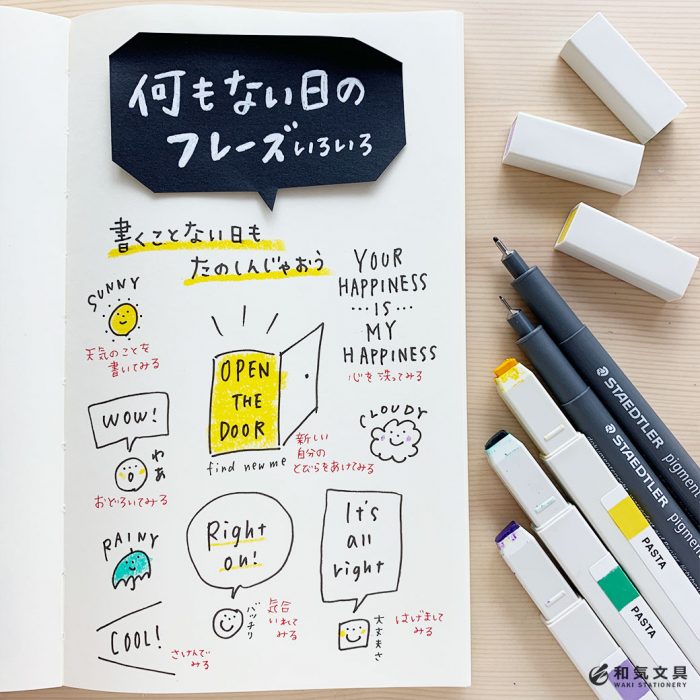 何もない日の
フレーズいろいろ
書くことない日も
たのしんじゃおう
SUNNY
天気のことを
書いてみる
YOUR
HAPPINESS
…IS…
MY
HAPPINESS
心を洗ってみる
OPEN
THE
DOOR
find new me
新しい
自分の
とびらをあけてみる
WOW!
わぁ
おどろいてみる
CLOUDY
RAINY
Right
on!
バッチリ
気合
いれて
みる
It's
all
right
大丈夫さ
はげまして
みる
COOL!
さけんで
みる
STAEDTLER pigmen
STAEDTLER pigmen
PASTA
PASTA
和気文具
WAKI STATIONERY